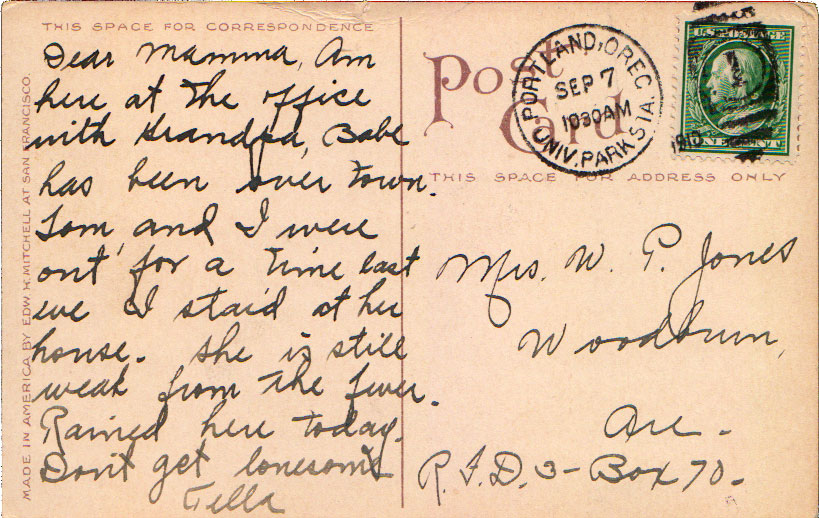 THIS SPACE FOR CORRESPONDENCE
Dear Mamma, Am
here at the office
with Grandpa, Babe
has been over town.
Tom, and I were
out for a time last
eve I staid at her
house. She is still
weak from the fever.
Rained here today.
Don't get lonesome
Tella
MADE IN AMERICA BY EDW. H. MITCHELL AT SAN FRANCISCO.
Post
Card
THIS SPACE FOR ADDRESS ONLY
PORTLAND, OREG.
SEP 7
1030AM
UNIV. PARK STA.
1910
U.S. POSTAGE
Mrs. W. P. Jones
Woodburn,
Ore.
R.F.D. 3 - Box 70.